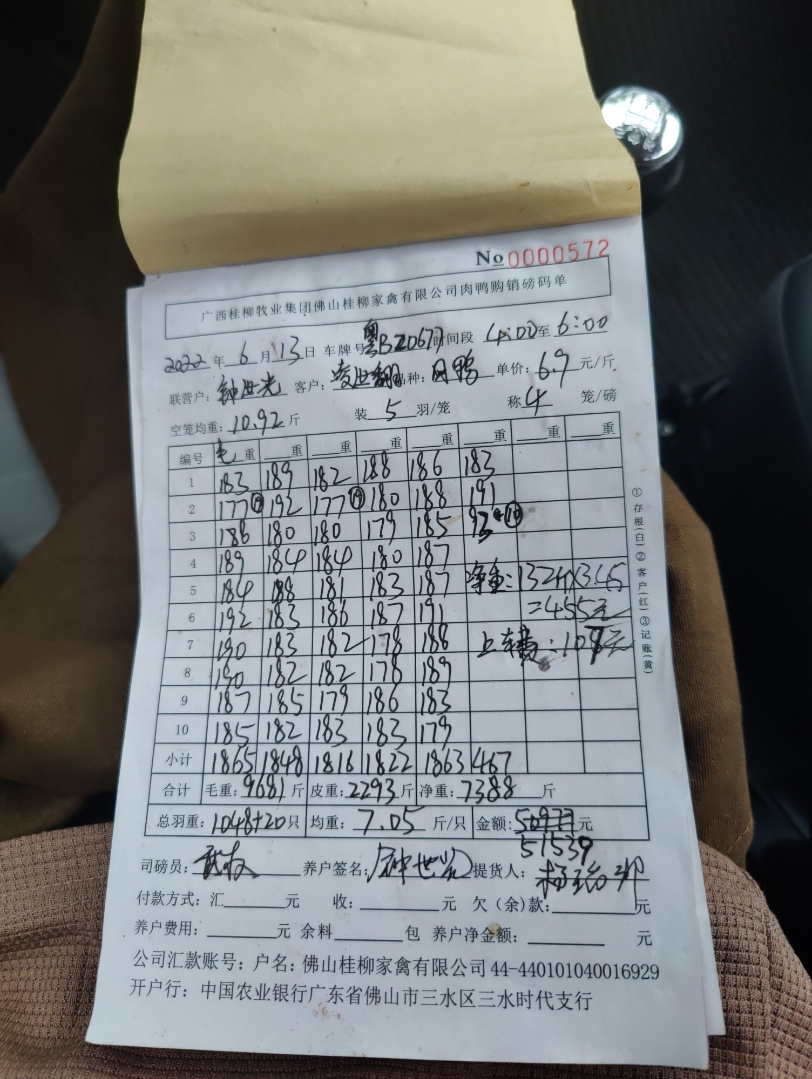 No 0000572
广西桂柳牧业集团佛山桂柳家禽有限公司肉鸭购销磅码单
2022 年 6 月 13 日 车牌号 粤BZ0677 时间段 4:00 至 6:00
联营户: 钟世光 客户: 品种: 肉鸭 单价: 6.9 元/斤
空笼均重: 10.92 斤 装 5 羽/笼 称 4 笼/磅
编号 毛重 重 重 重 重 重 重 重
1 183 189 182 188 186 183
2 177⑲ 192 177⑲ 180 188 191
3 186 180 180 179 185 93
4 189 184 184 180 187
5 184 188 181 183 187 净重: 1324×3.45
6 192 183 186 187 191 =455元
7 190 183 182 178 188 上车费:
8 190 182 182 178 189
9 187 185 179 186 183
10 185 182 183 183 179
小计 1865 1848 1816 1822 1863 467
合计 毛重: 9681 斤 皮重: 2293 斤 净重: 7388 斤
总羽重: 1048+20 只 均重: 7.05 斤/只 金额: 50977 元
51539
司磅员: 养户签名: 提货人:
付款方式: 汇 元 收: 元 欠(余)款: 元
养户费用: 元 余料 包 养户净金额: 元
公司汇款账号: 户名: 佛山桂柳家禽有限公司 44-440101040016929
开户行: 中国农业银行广东省佛山市三水区三水时代支行
①存根(白)②客户(红)③记账(黄)